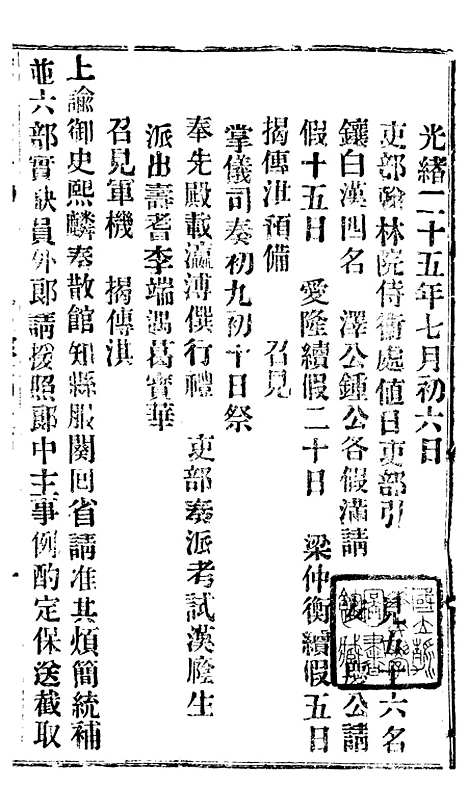 光緒二十五年七月初六日
吏部翰林院侍衛處値日吏部引　見五十六名
鑲白漢四名　澤公鍾公各假滿請　公請
假十五日　愛隆續假二十日　梁仲衡續假五日
揭傳淮預備　召見
掌儀司奏初九初十日祭
奉先殿載瀛溥僎行禮　吏部奏派考試漢廕生
派出壽耆李端遇葛寶華
召見軍機　揭傳淇
上諭御史熙麟奏散館知縣服闋囘省請准其煩簡統補
並六部實缺員外郞請援照郞中主事例酌定保送截取